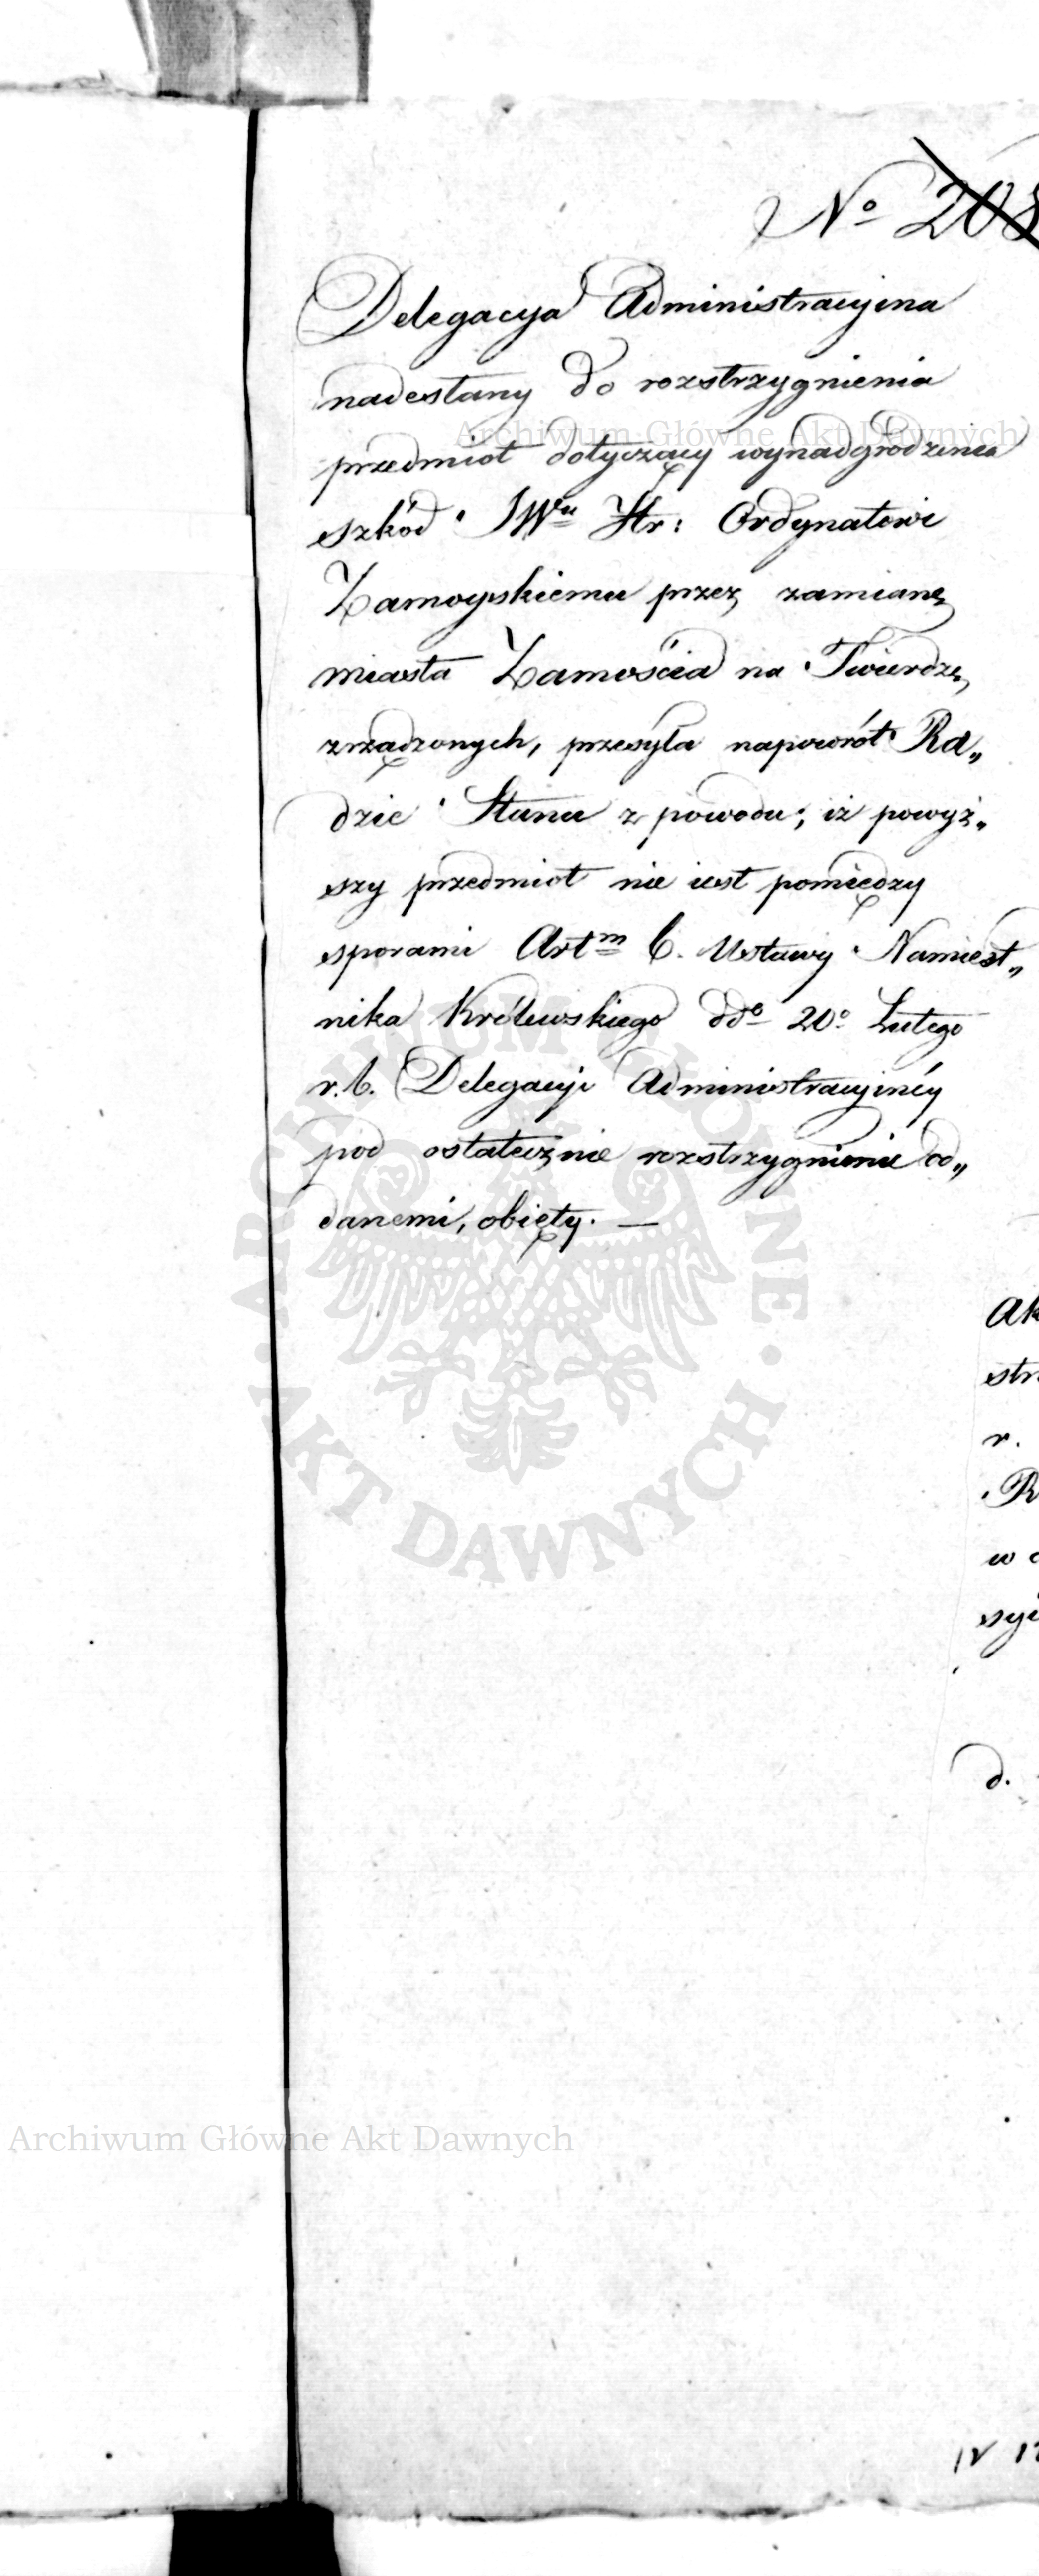 No 208
Delegacya Administracyina
nadesłany do rozstrzygnienia
Archiwum Główne Akt Dawnych
przedmiot dotyczący wynadgrodzenia
szkód JWu Hr: Ordynatowi
Zamoyskiemu przez zamianę
miasta Zamościa na Twierdzę,
zrządzonych, przesyła napowrót Ra„
dzie Stanu z powodu, iż powyż„
szy przedmiot nie iest pomiędzy
sporami Artm 6. Ustawy Namiest„
nika Królewskiego ddo 20o Lutego
r. b. Delegacyi Administracyinéy
pod ostateczne rozstrzygnienie od„
danemi, obięty. —
ARCHIWUM GŁÓWNE · AKT DAWNYCH ·
Ak
str
r.
R
w
syi
d.
Archiwum Główne Akt Dawnych